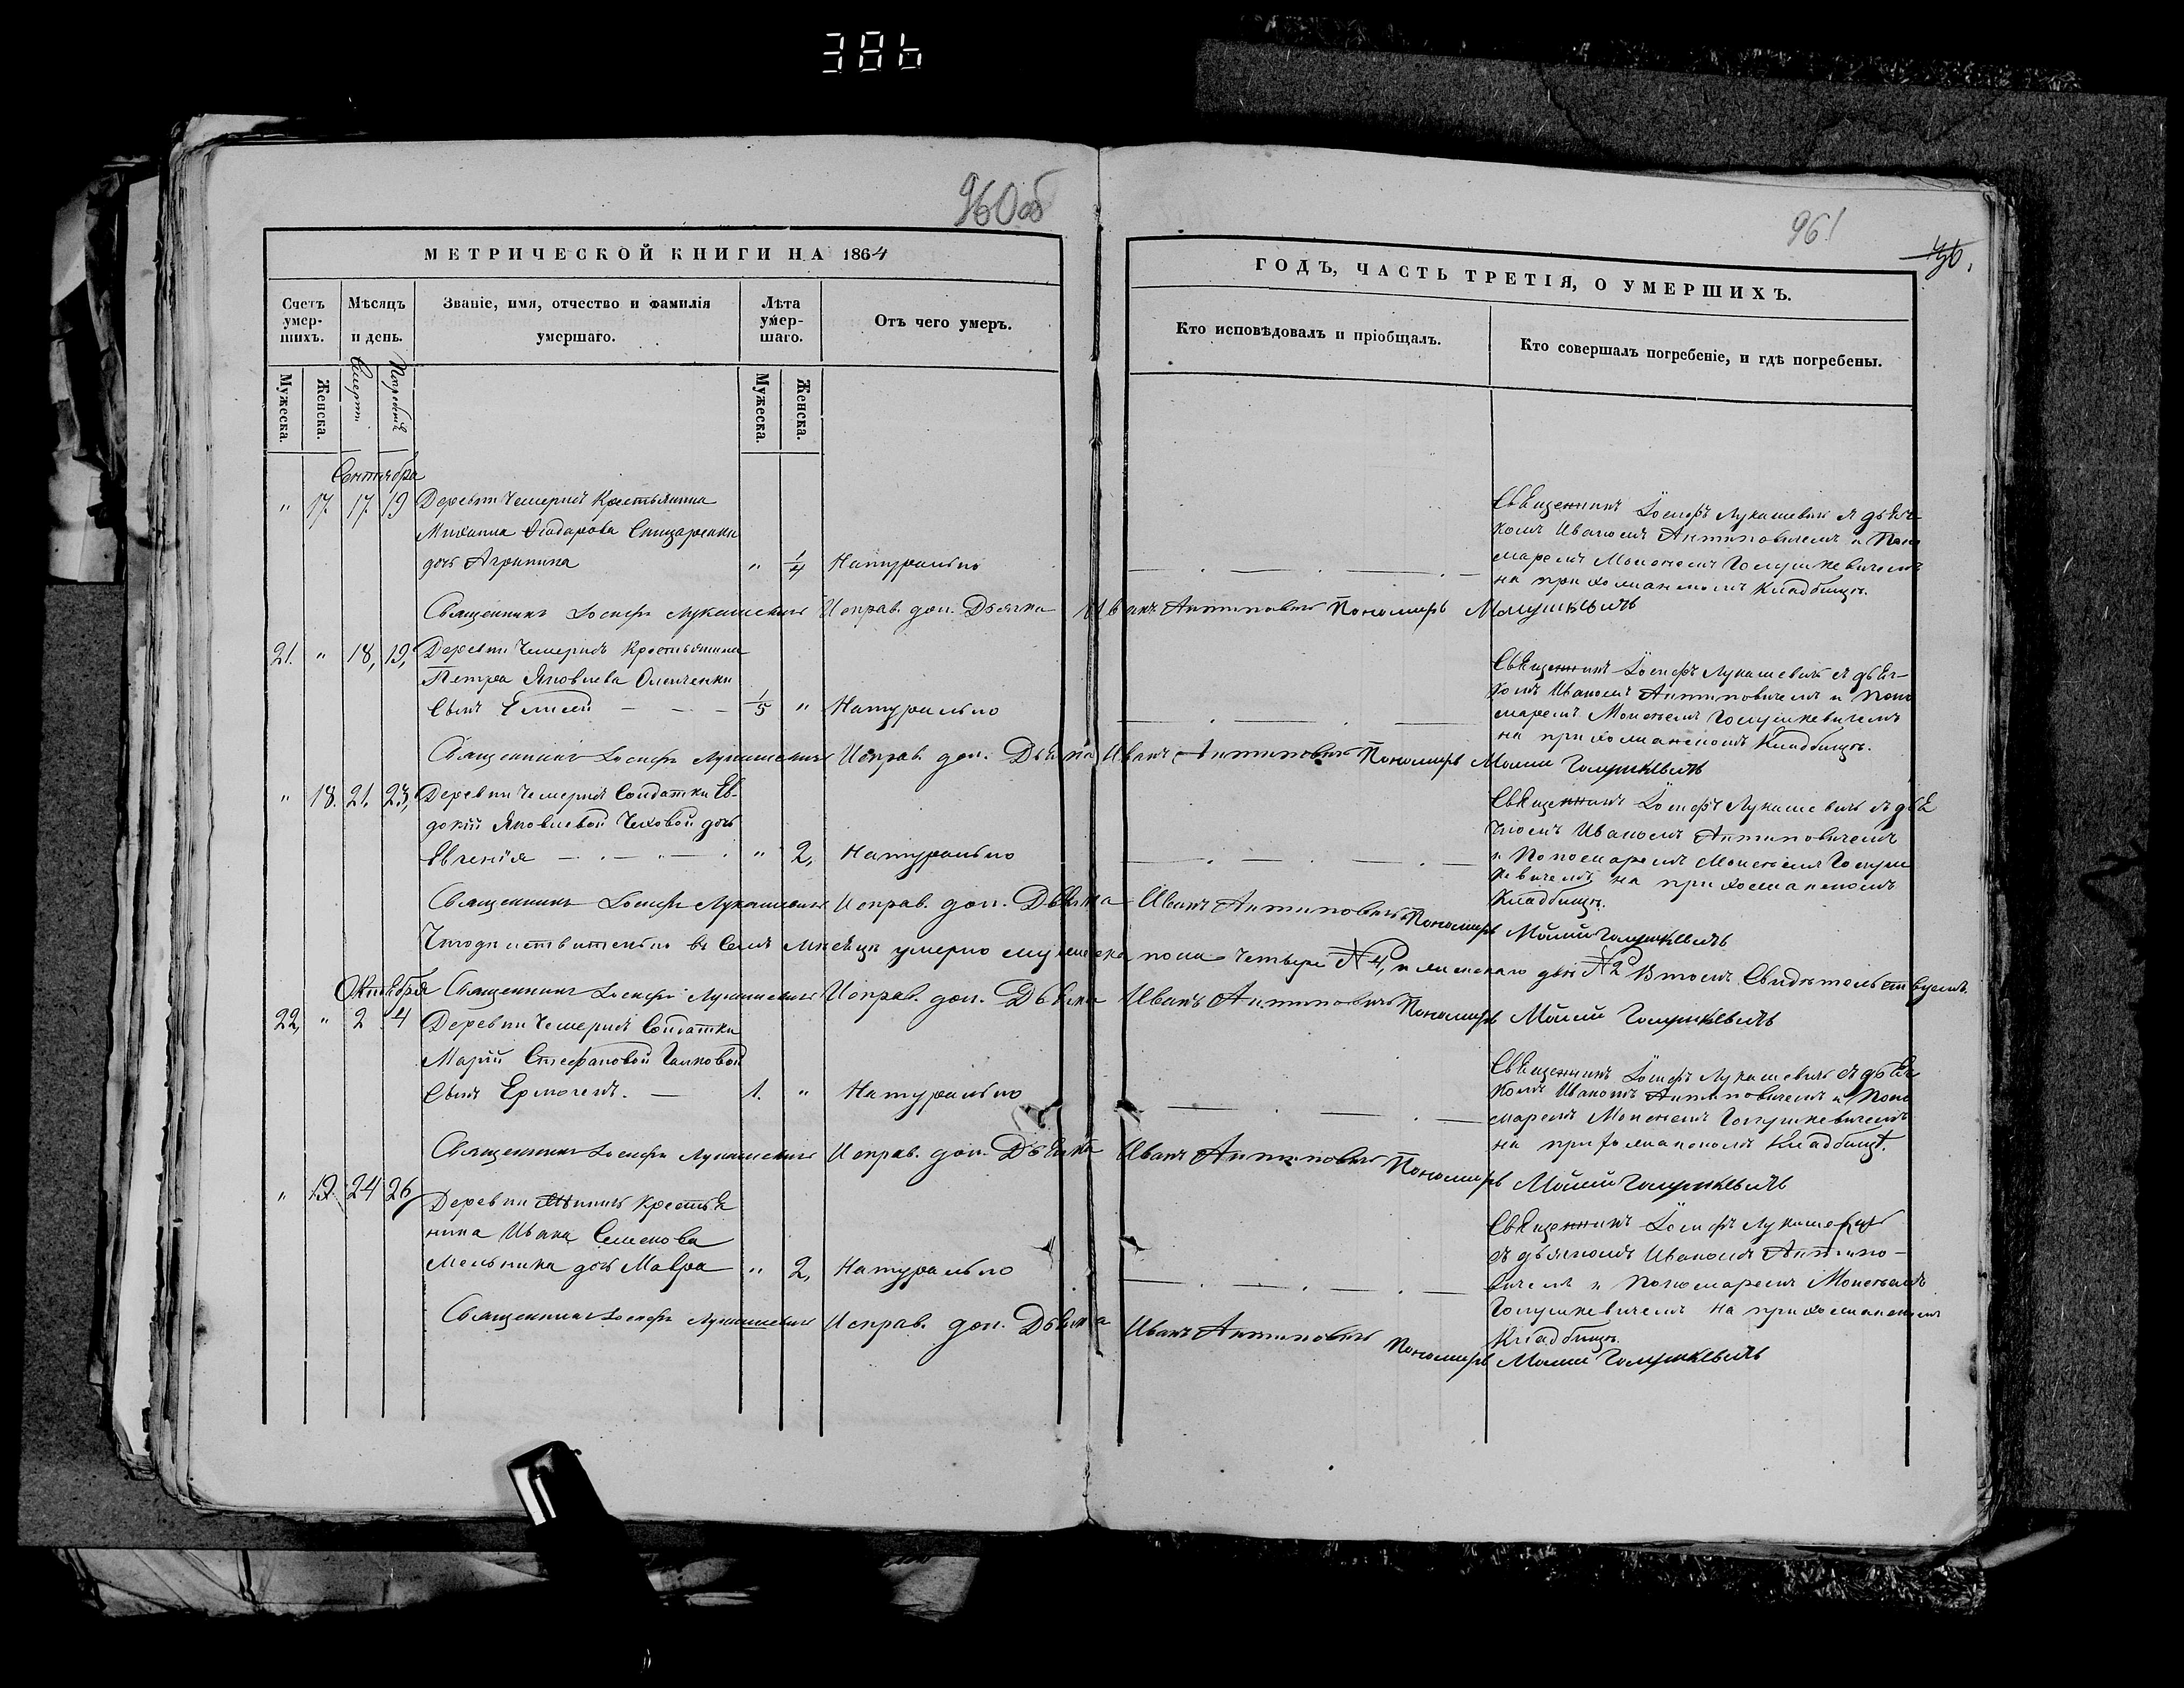 386
960об
961
МЕТРИЧЕСКОЙ КНИГИ НА 1864
ГОДЪ, ЧАСТЬ ТРЕТІЯ, О УМЕРШИХЪ.
Счетъ умер-шихъ.
Мѣсяцъ и день.
Званіе, имя, отчество и фамилія умершаго.
Лѣта умер-шаго.
Отъ чего умеръ.
Кто исповѣдовалъ и пріобщалъ.
Кто совершалъ погребеніе, и гдѣ погребены.
Мужеска.
Женска.
Смерти
Погребенія
Мужеска.
Женска.
Сентября
" 17. 17 19 Деревни Чемерисъ Крестьянина
Михаила
дочь Агрипина " 1/4 Натурально
Священникъ Іосифъ Лукашевичъ съ дьяч-
комъ Иваномъ Антиповичемъ и Поно
маремъ Моисеемъ Голушкевичемъ
на прихожанскомъ Кладбищѣ.
Священникъ Іосифъ Лукашевичъ Исправ. дол. Дьячка Иванъ Антиповичъ Пономарь
21. " 18, 19, Деревни Чемерисъ Крестьянина
Петра Яковлева
Сынъ Елисей 1/5 " Натурально
Священникъ Іосифъ Лукашевичъ съ дьяч-
комъ Иваномъ Антиповичемъ и Поно
маремъ Моисеемъ Голушкевичемъ
на прихожанскомъ Кладбищѣ.
Священникъ Іосифъ Лукашевичъ Исправ. дол. Дьячка Иванъ Антиповичъ Пономарь Моисей Голушкевичъ
" 18. 21. 23, Деревни Чемерисъ Солдатки Ев-
докіи Яковлевой Чеховой дочь
Евгенія " 2, Натурально
Священникъ Іосифъ Лукашевичъ съ дья
чкомъ Иваномъ Антиповичемъ
и Пономаремъ Моисеемъ Голуш
кевичемъ на прихожанскомъ
Кладбищѣ.
Священникъ Іосифъ Лукашевичъ Исправ. дол. Дьячка Иванъ Антиповичъ Пономарь Моисей Голушкевичъ
Что дѣйствительно въ семъ мѣсяцѣ умерло мужеска пола Четыре № 4, и женскаго двѣ № 2 Въ томъ Свидѣтельствуемъ.
Октября Священникъ Іосифъ Лукашевичъ Исправ. дол. Дьячка Иванъ Антиповичъ Пономарь Моисей Голушкевичъ
22, " 2 4 Деревни Чемерисъ Солдатки
Маріи Стефановой Галковой
Сынъ Ермогенъ. 1. " Натурально
Священникъ Іосифъ Лукашевичъ съ дьяч
комъ Иваномъ Антиповичемъ и Поно
маремъ Моисеемъ Голушкевичемъ
на прихожанскомъ Кладбищѣ.
Священникъ Іосифъ Лукашевичъ Исправ. дол. Дьячка Иванъ Антиповичъ Пономарь Моисей Голушкевичъ
" 19. 24 26 Деревни Крестья
нина Ивана Семенова
Мельника дочь Мавра " 2, Натурально
Священникъ Іосифъ Лукашевичъ
съ дьячкомъ Иваномъ Антипо-
вичемъ и Пономаремъ Моисеемъ
Голушкевичемъ на прихожанскомъ
Кладбищѣ.
Священникъ Іосифъ Лукашевичъ Исправ. дол. Дьячка Иванъ Антиповичъ Пономарь Моисей Голушкевичъ